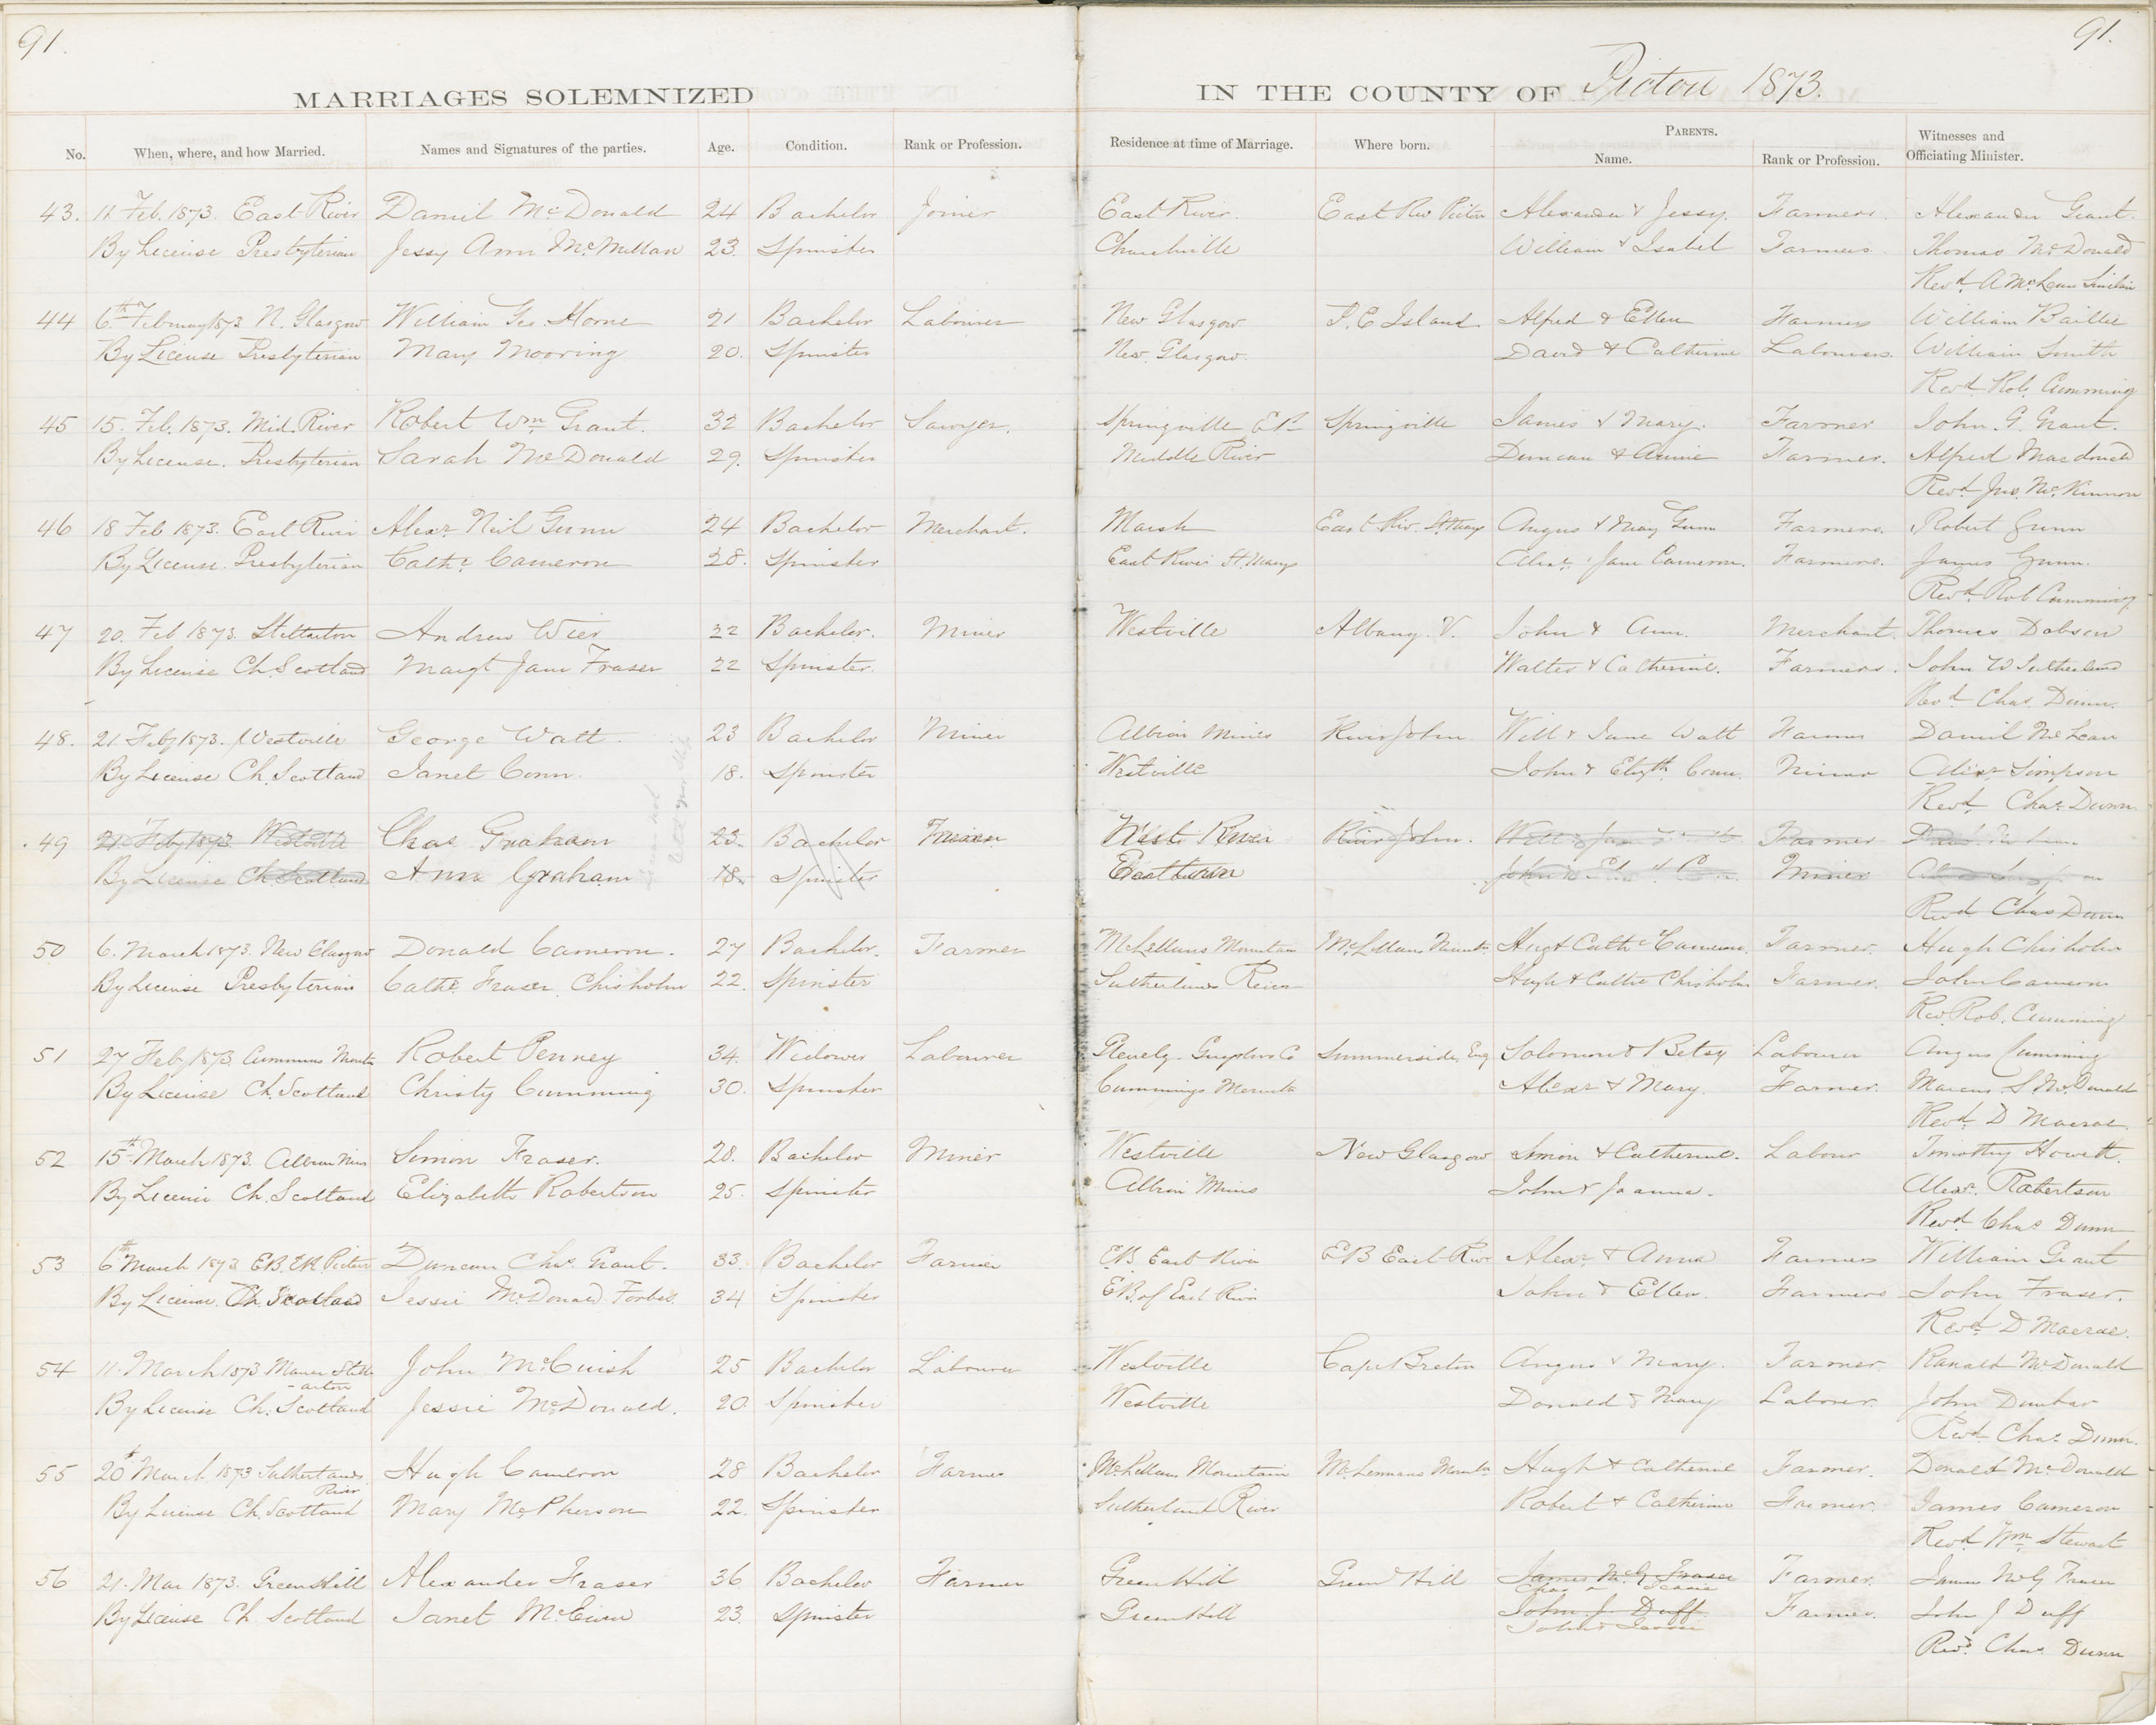 91.
91.
MARRIAGES SOLEMNIZED IN THE COUNTY OF Pictou 1873.
No. When, where, and how Married. Names and Signatures of the parties. Age. Condition. Rank or Profession. Residence at time of Marriage. Where born. PARENTS. Name. Rank or Profession. Witnesses and Officiating Minister.
43. 11 Feb. 1873. East River Daniel McDonald 24 Bachelor Joiner East River. East Riv Pictou Alexander & Jessy. Farmers. Alexander Grant.
By License Presbyterian Jessy Ann McMillan 23. Spinster Churchville William & Isabel Farmers Thomas McDonald
Revd. A McLean Sinclair
44 6th February 1873 N. Glasgow William Geo. Horne 21 Bachelor Labourer New Glasgow P. E Island Alfred & Ellen Farmers William Baillie
By License Presbyterian Mary Mooring 20. Spinster New Glasgow. David & Catherine Labourers. William Smith
Revd. Rob. Cumming
45 15. Feb. 1873. Mid. River Robert Wm Grant. 32 Bachelor Sawyer. Springville E.R Springville James & Mary. Farmer John. G. Grant.
By License. Presbyterian Sarah McDonald 29. Spinster Middle River Duncan & Annie Farmer. Alfred Macdonald
Revd. Jno. McKinnon
46 18 Feb 1873. East River Alexr Neil Gunn 24 Bachelor Merchant. Marsh East Riv. St. Marys Angus & Mary Gunn Farmers. Robert Gunn
By License. Presbyterian Cathe Cameron 28. Spinster East River St. Marys Alexr Jane Cameron. Farmers. James Gunn.
Revd. Rob Cumming
47 20. Feb 1873. Stellarton Andrew Wier 22 Bachelor. Miner Westville Albany. V. John & Ann. Merchant. Thomas Dobson
By License Ch. Scotland Margt Jane Fraser 22 Spinster. Walter & Catherine. Farmers. John W Sutherland
Revd Chas. Dunn.
48. 21. Feby 1873. Westville George Watt. 23 Bachelor Miner Albion Mines River John Will & Jane Watt Farmer Daniel McLean
By License Ch. Scotland Janet Conn. 18. Spinster Westville John & Elizth. Conn. Miner Alexr Simpson
Revd. Chas. Dunn
49 21 Feby 1873 Westville Chas Graham 23 Bachelor West River River John. Farmer
By License Ch. Scotland Ann Graham 18. Spinster Miner
Revd Chas Dunn
50 6. March 1873. New Glasgow Donald Cameron. 27 Bachelor. Farmer McLellans Mountain McLellans Mount. Hugh & Cathe Cameron Farmer. Hugh Chisholm
By License Presbyterian Cathe. Fraser Chisholm 22. Spinster Sutherlands River Hugh & Cathe Chisholm Farmer. John Cameron
Rev. Rob. Cumming
51 27 Feby 1873. Cummins Mount Robert Penney 34. Widower Labourer Glenelg. Guysboro Co Summerside, Eng Solomon & Betsy Labourer Angus Cumming
By License Ch. Scotland Christy Cumming 30. Spinster Cummings Mounta Alexr & Mary. Farmer. Marcus. S McDonald
Revd. D Macrae.
52 15th March 1873. Albion Mins Simon Fraser. 28. Bachelor Miner Westville New Glasgow Simon & Catherine. Labour Timothy Howett.
By License Ch. Scotland Elizabeth Robertson 25. Spinster Albion Mines John & Joanna. Alexr. Robertson
Revd. Chas Dunn
53 6th March 1873 E.B. E.R. Pictou Duncan Chas. Grant. 33. Bachelor Farmer E.B. East River E B East Rivr Alexr & Anna Farmers William Grant
By License. Ch. Scotland Jessie McDonald Forbes. 34 Spinster E B. of East River John & Ellen. Farmers John Fraser.
Revd. D Macrae.
54 11. March 1873 Manse Stell-arton John McCuish 25 Bachelor Labourer Westville Cape Breton Angus & Mary. Farmer. Ranald McDonald
By License Ch. Scotland Jessie McDonald. 20. Spinster Westville Donald & Mary Laborer. John Dunbar
Revd. Chas. Dunn.
55 20th March 1873 Sutherlands River Hugh Cameron 28 Bachelor Farmer McLellans Mountain McLennans Mounta Hugh & Catherine Farmer. Donald McDonald
By License Ch. Scotland Mary McPherson 22. Spinster Sutherland River Robert & Catherine Farmer. James Cameron
Revd. Wm Stewart
56 21. Mar 1873. Green Hill Alexander Fraser 36 Bachelor Farmer Green Hill Green Hill James McG Fraser Farmer. James McG Fraser
By License Ch. Scotland Janet McEwen 23. Spinster Green Hill John J. Duff Farmer. John J Duff
Revd. Chas Dunn